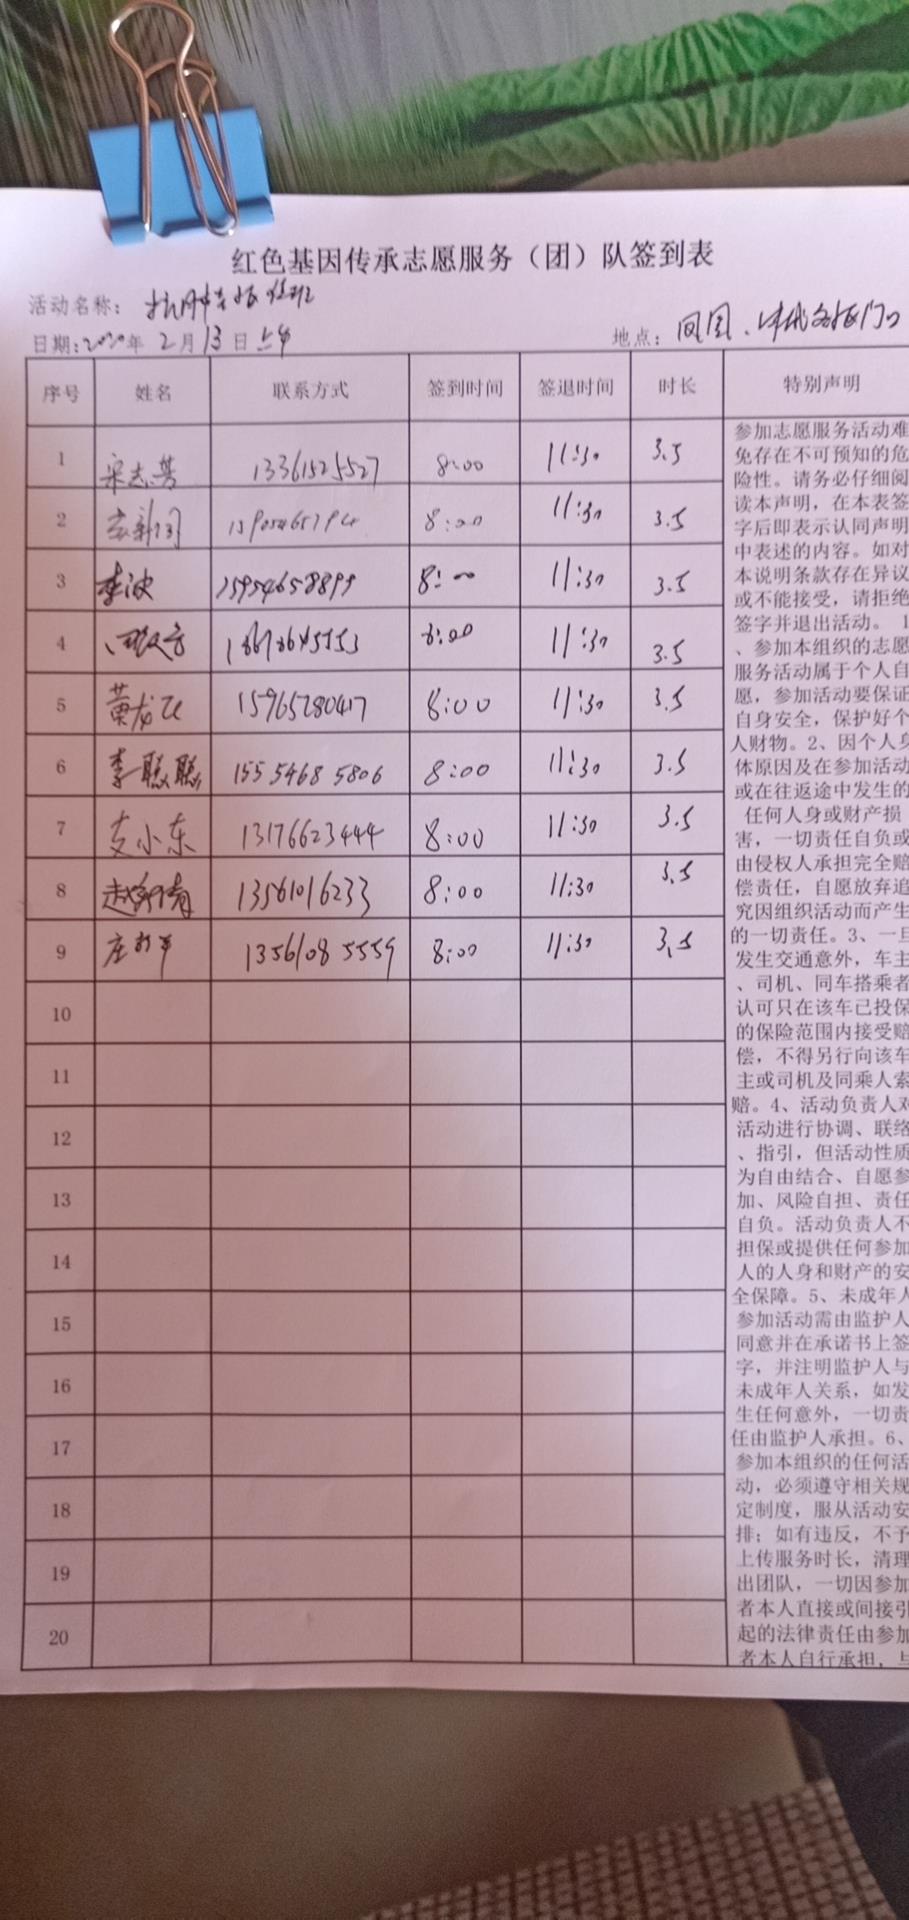 红色基因传承志愿服务（团）队签到表
活动名称：
日期:2020年 2月13日上午 地点：凤凰
序号 姓名 联系方式 签到时间 签退时间 时长 特别声明
1 宋志芳 13361525527 8:00 11:30 3.5
2 8:00 11:30 3.5
3 李波 15954658899 8:00 11:30 3.5
4 8:00 11:30 3.5
5 黄龙飞 15965280417 8:00 11:30 3.5
6 李聪聪 155 5468 5806 8:00 11:30 3.5
7 支小东 13176623444 8:00 11:30 3.5
8 13561016233 8:00 11:30 3.5
9 1356108 5559 8:00 11:30 3.5
10
11
12
13
14
15
16
17
18
19
20
参加志愿服务活动难
免存在不可预知的危
险性。请务必仔细阅
读本声明，在本表签
字后即表示认同声明
中表述的内容。如对
本说明条款存在异议
或不能接受，请拒绝
签字并退出活动。 1
、参加本组织的志愿
服务活动属于个人自
愿，参加活动要保证
自身安全，保护好个
人财物。2、因个人身
体原因及在参加活动
或在往返途中发生的
任何人身或财产损
害，一切责任自负或
由侵权人承担完全赔
偿责任，自愿放弃追
究因组织活动而产生
的一切责任。3、一旦
发生交通意外，车主
、司机、同车搭乘者
认可只在该车已投保
的保险范围内接受赔
偿，不得另行向该车
主或司机及同乘人索
赔。4、活动负责人对
活动进行协调、联络
、指引，但活动性质
为自由结合、自愿参
加、风险自担、责任
自负。活动负责人不
担保或提供任何参加
人的人身和财产的安
全保障。5、未成年人
参加活动需由监护人
同意并在承诺书上签
字，并注明监护人与
未成年人关系，如发
生任何意外，一切责
任由监护人承担。6、
参加本组织的任何活
动，必须遵守相关规
定制度，服从活动安
排；如有违反，不予
上传服务时长，清理
出团队，一切因参加
者本人直接或间接引
起的法律责任由参加
者本人自行承担，与